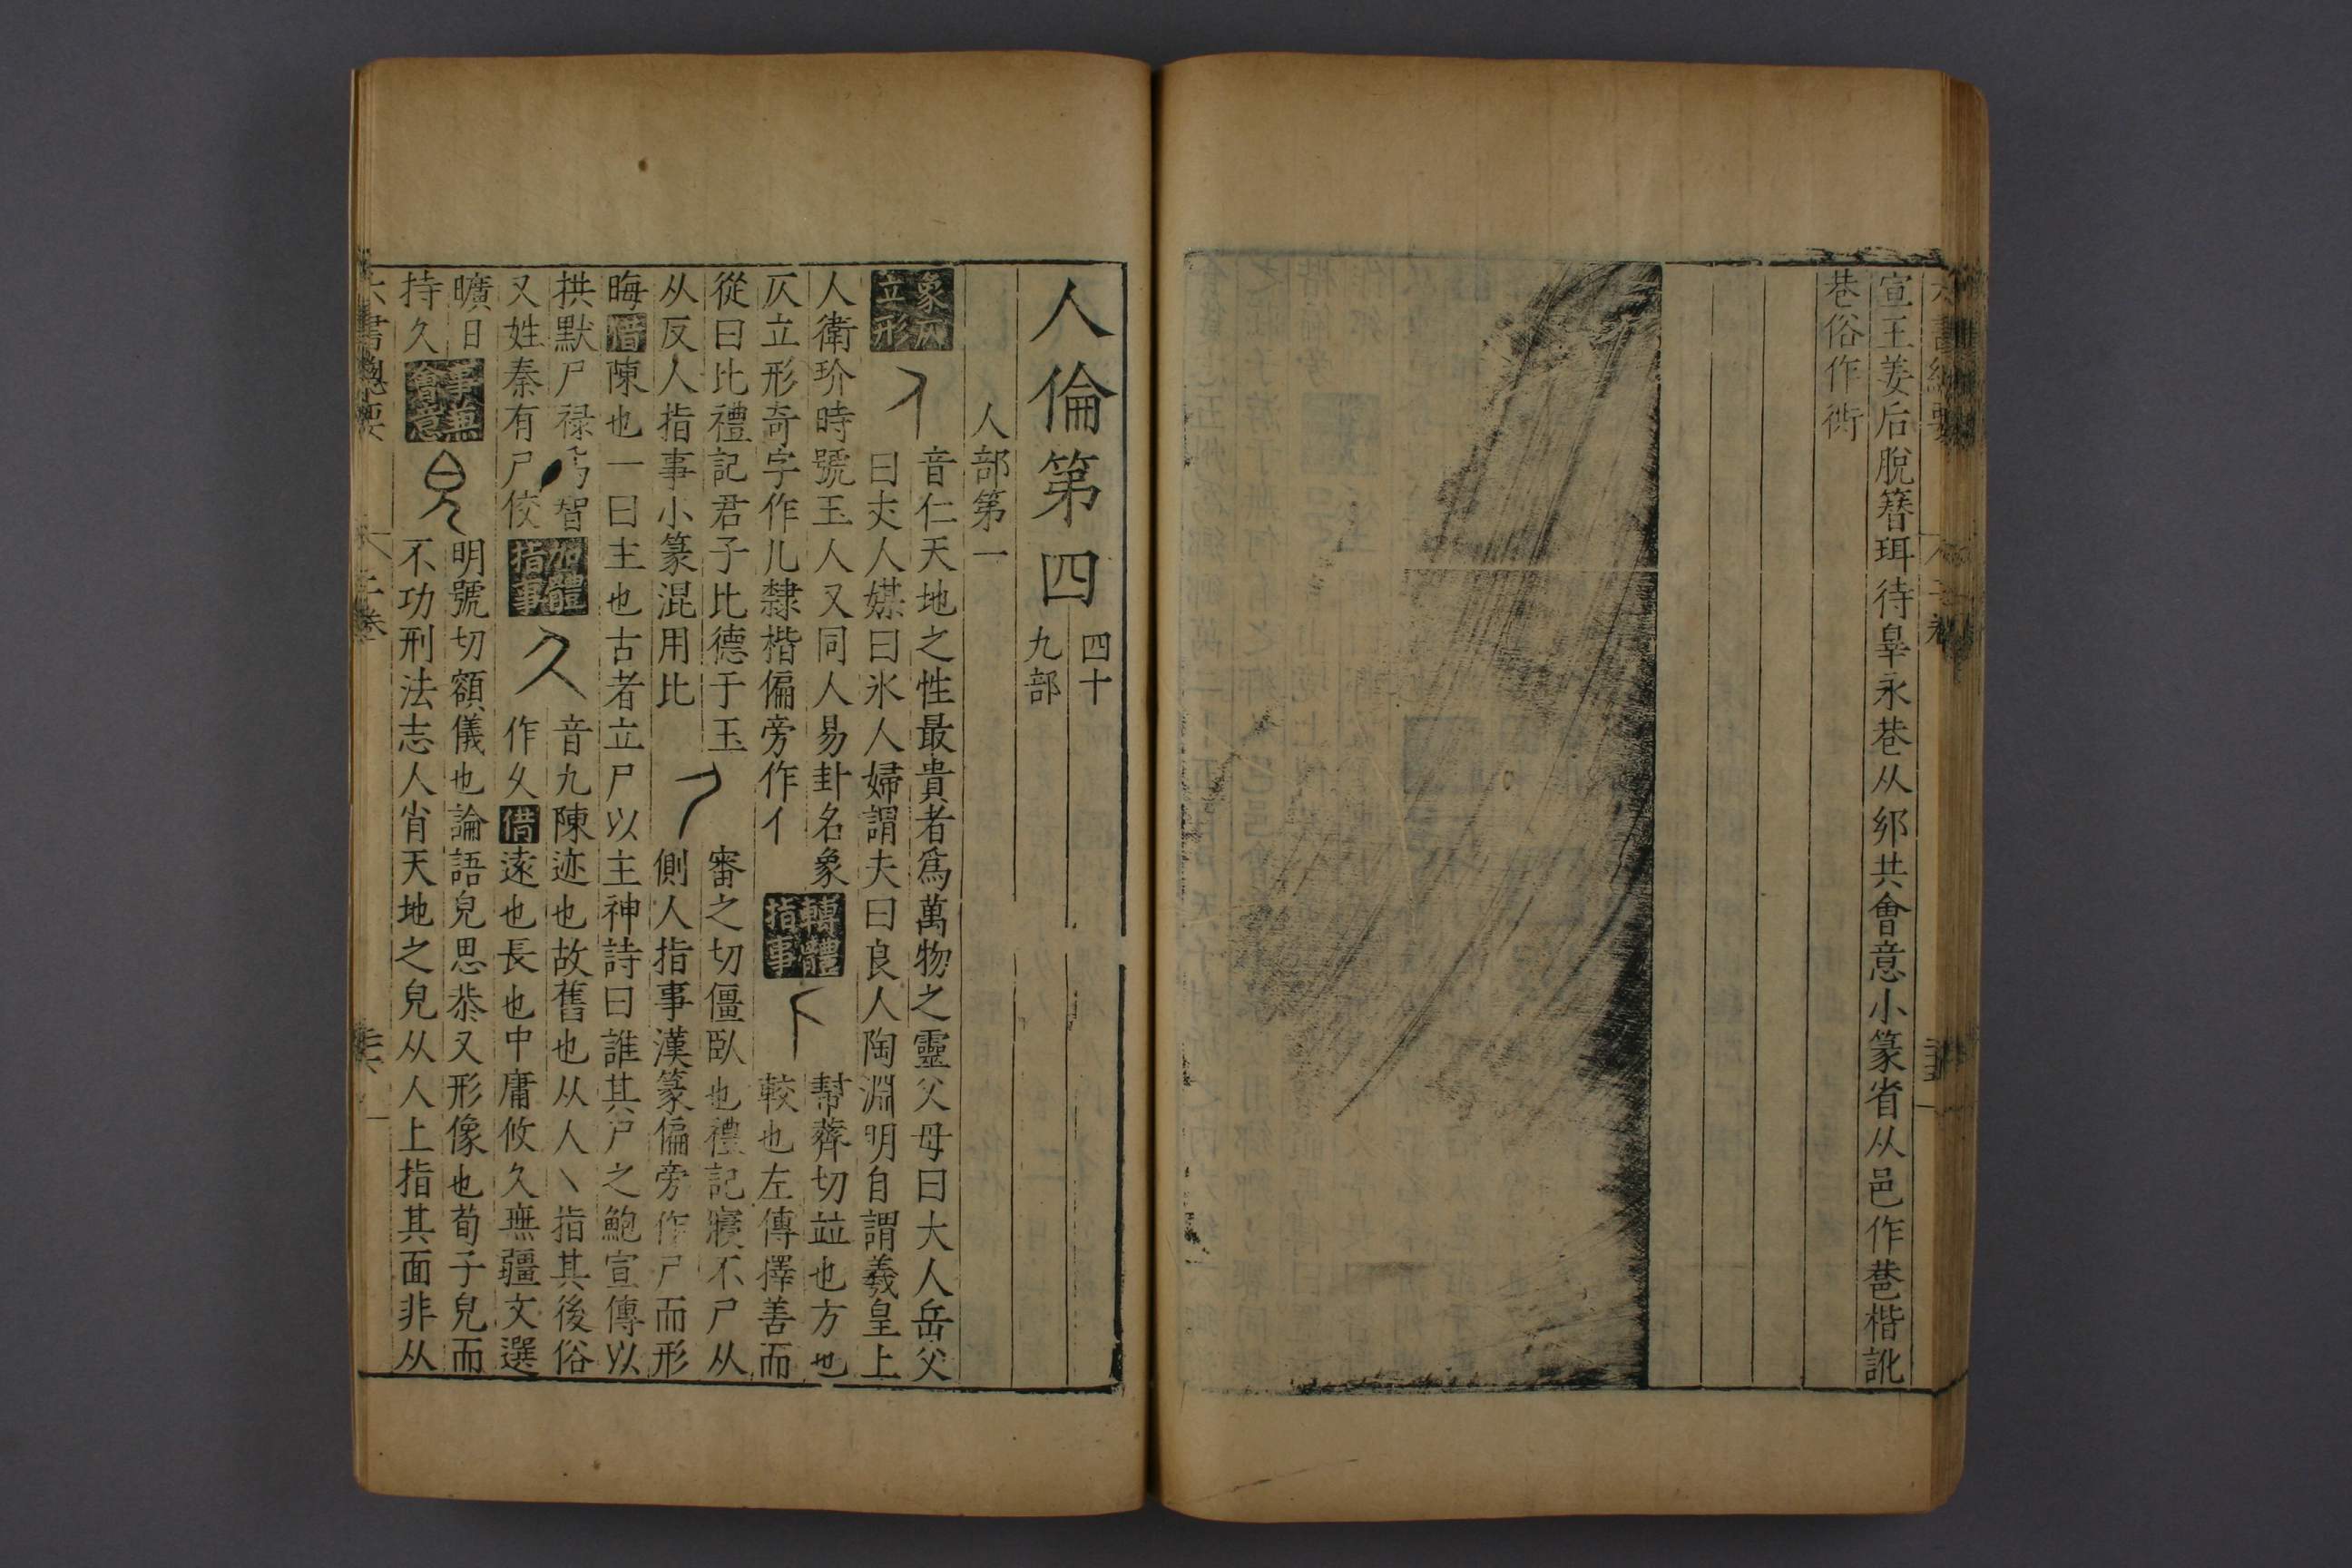 宣王姜后脫簪珥待辠永巷从𨛜共會意小篆省从邑作𨞠楷訛
巷俗作衖
人倫第四
四十
九部
人部第一
象仄
立形
音仁天地之性最貴者爲萬物之靈父母曰大人岳父
曰丈人媒曰氷人婦謂夫曰良人陶淵明自謂羲皇上
人衛玠時號玉人又同人易卦名象
仄立形奇字作儿隸楷偏旁作亻
轉體
指事
幇薺切竝也方也
較也左傳擇善而
從曰比禮記君子比德于玉
从反人指事小篆混用比
審之切僵臥也禮記寢不尸从
側人指事漢篆偏旁作尸而形
晦借陳也一曰主也古者立尸以主神詩曰誰其尸之鮑宣傳以
拱默尸禄爲智
又姓秦有尸佼
加體
指事
久
音九陳迹也故舊也从人乀指其後俗
作夂借遠也長也中庸攸久無疆文選
曠日
持久
事兼
會意
皃
明號切額儀也論語皃思恭又形像也荀子皃而
不功刑法志人肖天地之皃从人上指其面非从
六書總要
子卷